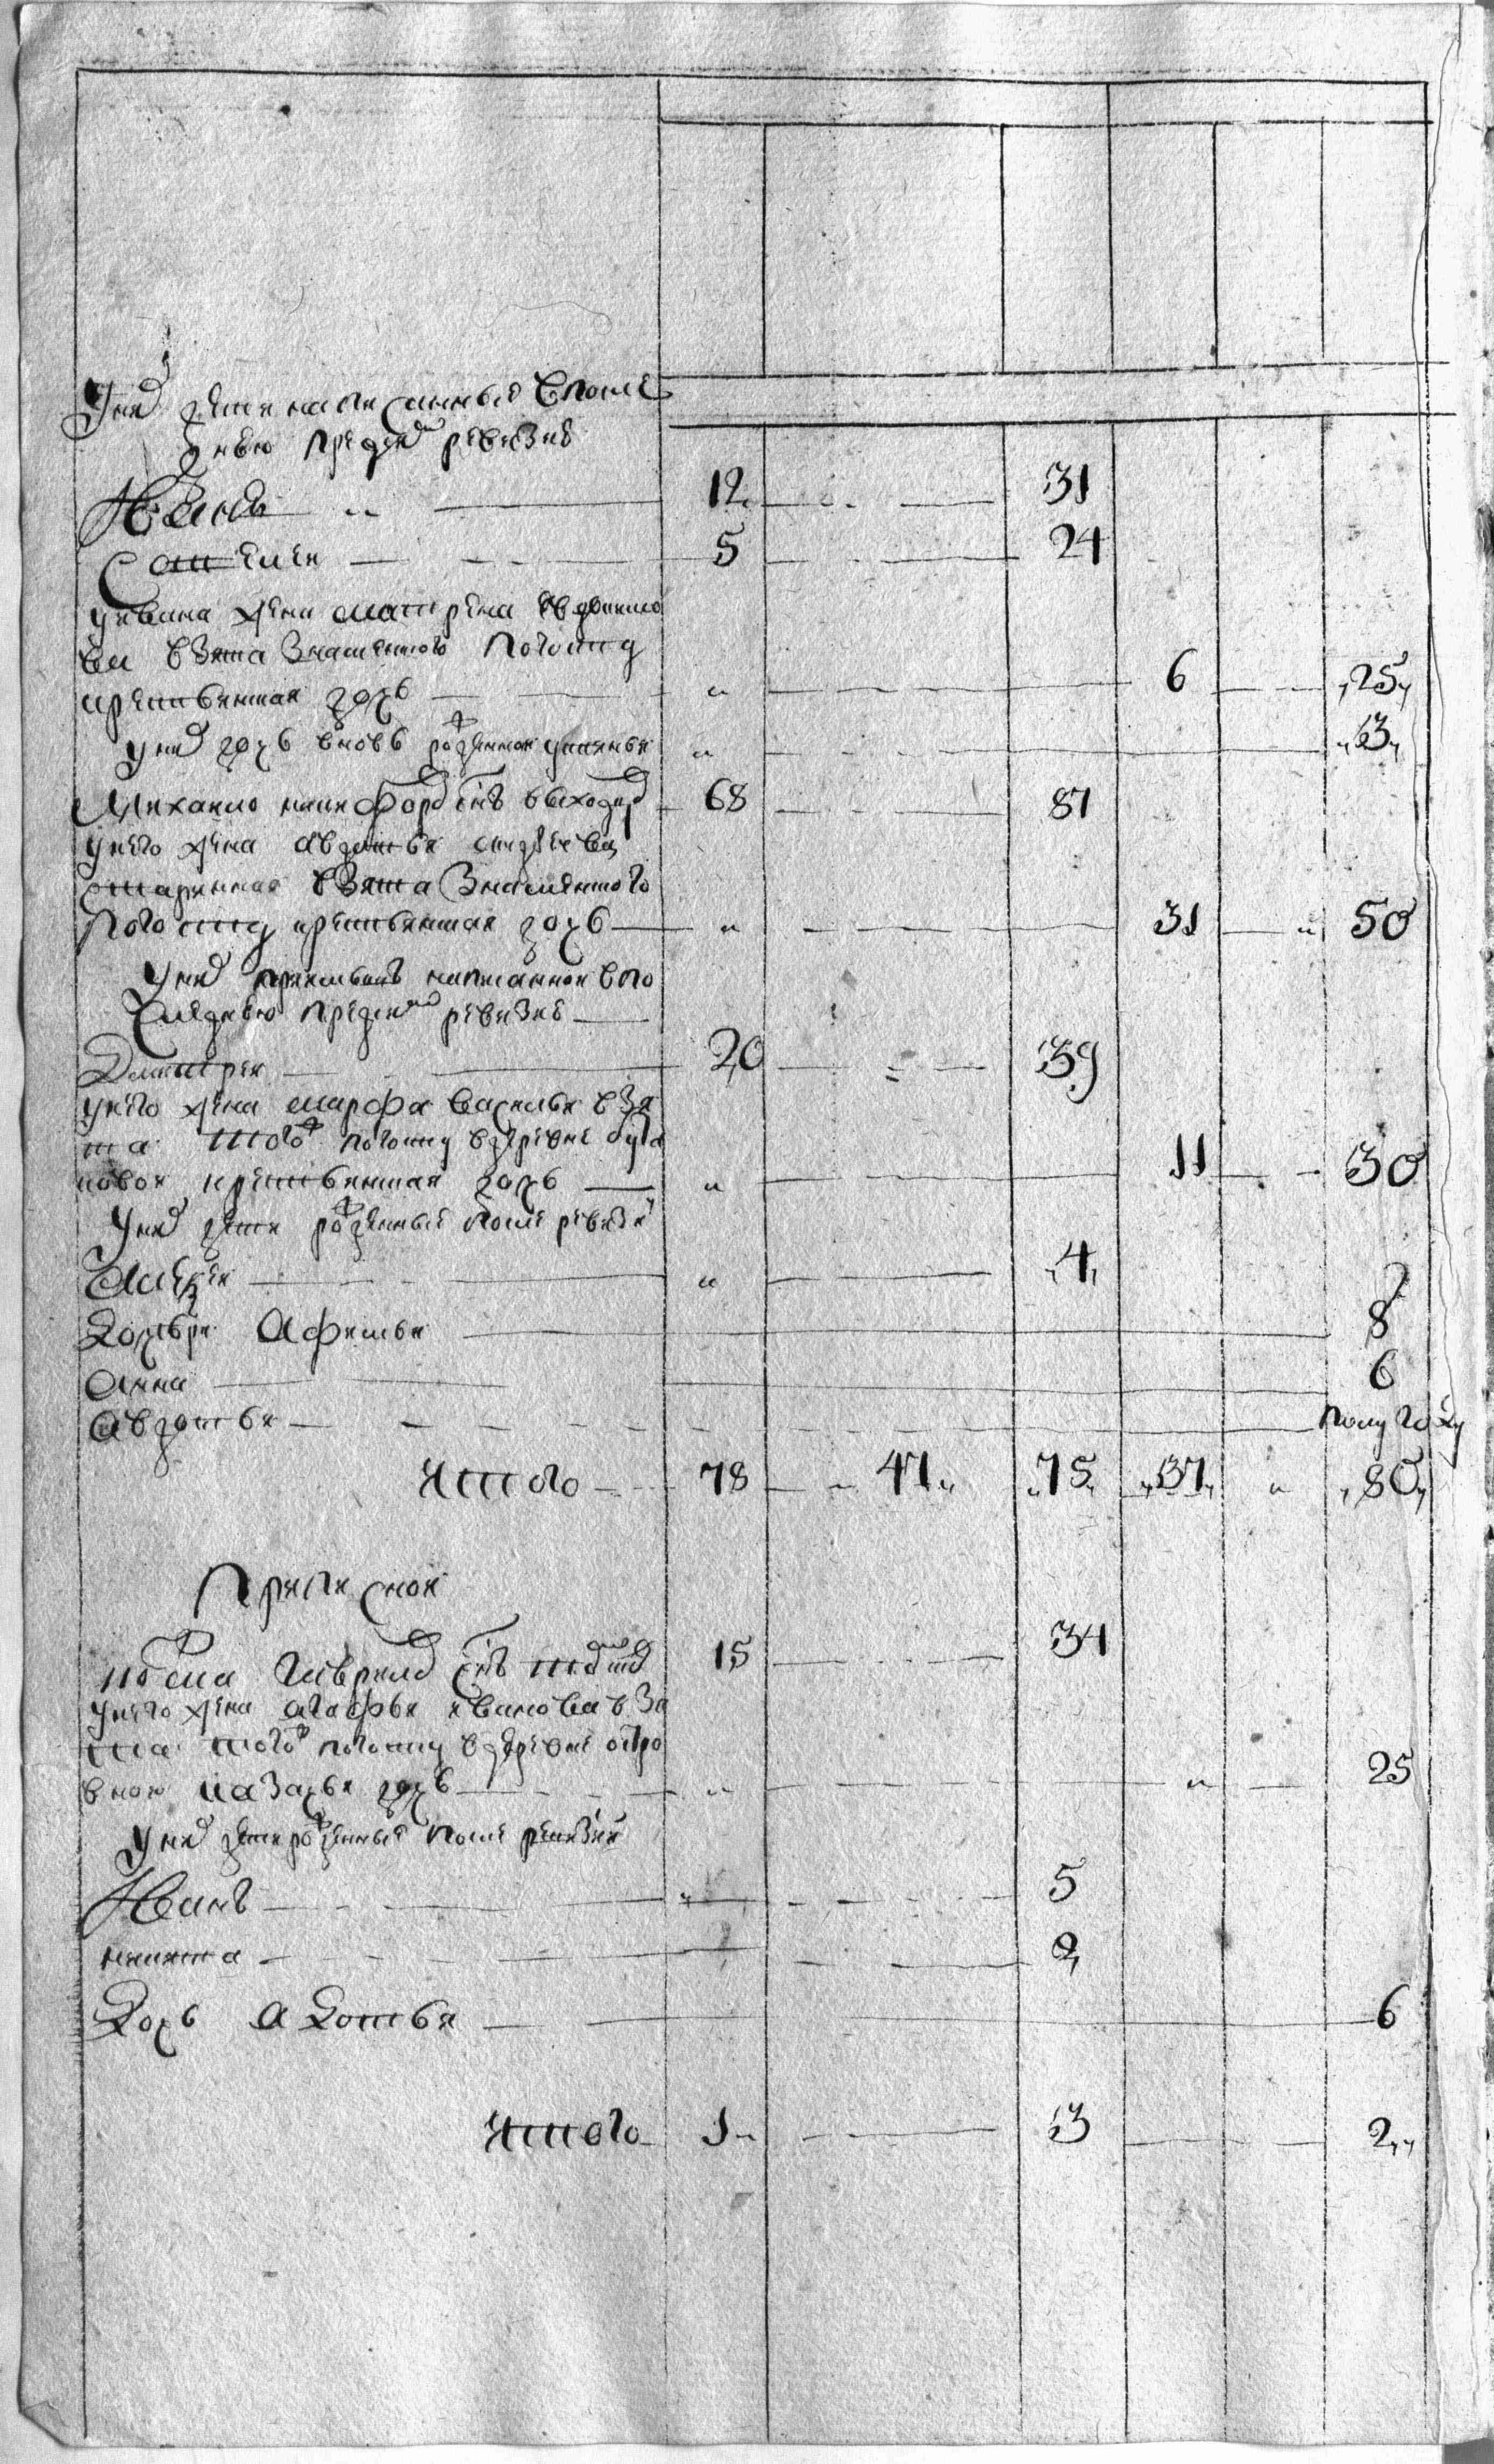 У них дети написанныя в после
днею пред сею ревизию
Иванъ 12 31
Самсон 5 24
у Ивана жена Матрена
взята Знаменского погосту
крестьянская дочь " 6 25
у них дочь вновь рожденная " 3
Михайло Никифоров снъ 68 87
у него жена Авдотья
старинная взята Знаменского
погосту крестьянская дочь " 31 " 50
У них написанной в по
следнею пред сею ревизию
Дмитрей 20 39
у него жена Марфа Васильева взя
та того ж погосту в деревне
крестьянская дочь " 11 30
У них дети рожденные после ревизи
Алексей " 4
Дочери Афимья 8
Анна 6
Авдотья полугоду
Итого 78 47 75 37 " 80
Приписной
Гаврилов снъ 15 34
у него жена Агафья Иванова взя
та того ж погосту в деревне
дочь " " 25
У них дети рожденные после ревизии
Иванъ " 5
Никита 2
Дочь Авдотья 6
Итого 1 3 2